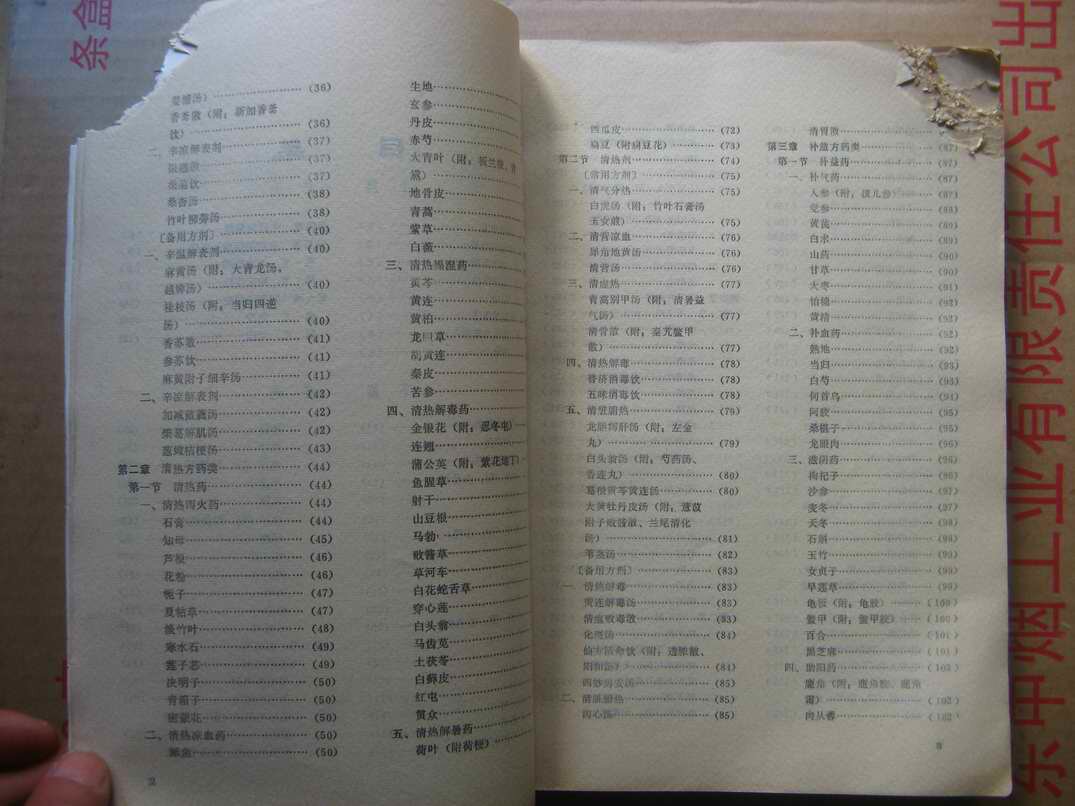 香薷散（附：新加香薷
饮）……(36)
二、辛凉解表剂……(37)
银翘散……(37)
桑菊饮……(38)
桑杏汤……(38)
竹叶柳蒡汤……(38)
〔备用方剂〕……(40)
一、辛温解表剂……(40)
麻黄汤（附：大青龙汤、
越婢汤）……(40)
桂枝汤（附：当归四逆
汤）……(40)
香苏散……(41)
参苏饮……(41)
麻黄附子细辛汤……(41)
二、辛凉解表剂……(42)
加减葳蕤汤……(42)
柴葛解肌汤……(42)
葱豉桔梗汤……(43)
第二章 清热方药类……(44)
第一节 清热药……(44)
一、清热泻火药……(44)
石膏……(44)
知母……(45)
芦根……(46)
花粉……(46)
栀子……(47)
夏枯草……(47)
淡竹叶……(48)
寒水石……(49)
莲子芯……(49)
决明子……(50)
青葙子……(50)
密蒙花……(50)
二、清热凉血药……(50)
犀角……(50)
2
生地
玄参
丹皮
赤芍
大青叶（附：板兰根、青
黛）
地骨皮
青蒿
紫草
白薇
三、清热燥湿药
黄芩
黄连
黄柏
龙胆草
胡黄连
秦皮
苦参
四、清热解毒药
金银花（附：忍冬屯）
连翘
蒲公英（附：紫花地丁）
鱼腥草
射干
山豆根
马勃
败酱草
草河车
白花蛇舌草
穿心莲
白头翁
马齿苋
土茯苓
白藓皮
红屯
贯众
五、清热解暑药
荷叶（附荷梗）
西瓜皮……(72)
扁豆（附扁豆花）……(73)
第二节 清热剂……(74)
〔常用方剂〕……(75)
一、清气分热……(75)
白虎汤（附：竹叶石膏汤
玉女煎）……(75)
二、清营凉血……(76)
犀角地黄汤……(76)
清营汤……(76)
三、清虚热……(77)
青蒿别甲汤（附：清暑益
气汤）……(77)
清骨散（附：秦艽鳖甲
散）……(77)
四、清热解毒……(78)
普济消毒饮……(78)
五味消毒饮……(78)
五、清脏腑热……(79)
龙胆泻肝汤（附：左金
丸）……(79)
白头翁汤（附：芍药汤、
香连丸）……(80)
葛根黄芩黄连汤……(80)
大黄牡丹皮汤（附：薏苡
附子败酱散、兰尾清化
汤）……(81)
苇茎汤……(82)
〔备用方剂〕……(83)
一、清热解毒……(83)
黄连解毒汤……(83)
清瘟败毒散……(83)
化斑汤……(84)
仙方活命饮（附：透脓散、
阳和汤）……(84)
四妙勇安汤……(85)
二、清脏腑热……(85)
泻心汤……(85)
清胃散
第三章 补益方药类……(87)
第一节 补益药……(87)
一、补气药……(87)
人参（附：孩儿参）……(87)
党参……(88)
黄芪……(89)
白术……(89)
山药……(90)
甘草……(90)
大枣……(91)
饴糖……(92)
黄精
二、补血药
熟地……(92)
当归……(93)
白芍……(93)
何首乌……(94)
阿胶……(95)
桑椹子……(95)
龙眼肉……(96)
三、滋阴药……(96)
枸杞子……(96)
沙参……(96)
麦冬……(97)
天冬……(98)
石斛……(98)
玉竹……(99)
女贞子……(99)
旱莲草……(99)
龟板（附：龟胶）……(100)
鳖甲（附：鳖甲胶）……(100)
百合……(101)
黑芝麻……(101)
四、助阳药……(102)
鹿角（附：鹿角胶、鹿角
霜）……(102)
肉苁蓉……(102)
3
条盒
东中烟工业有限责任公司出